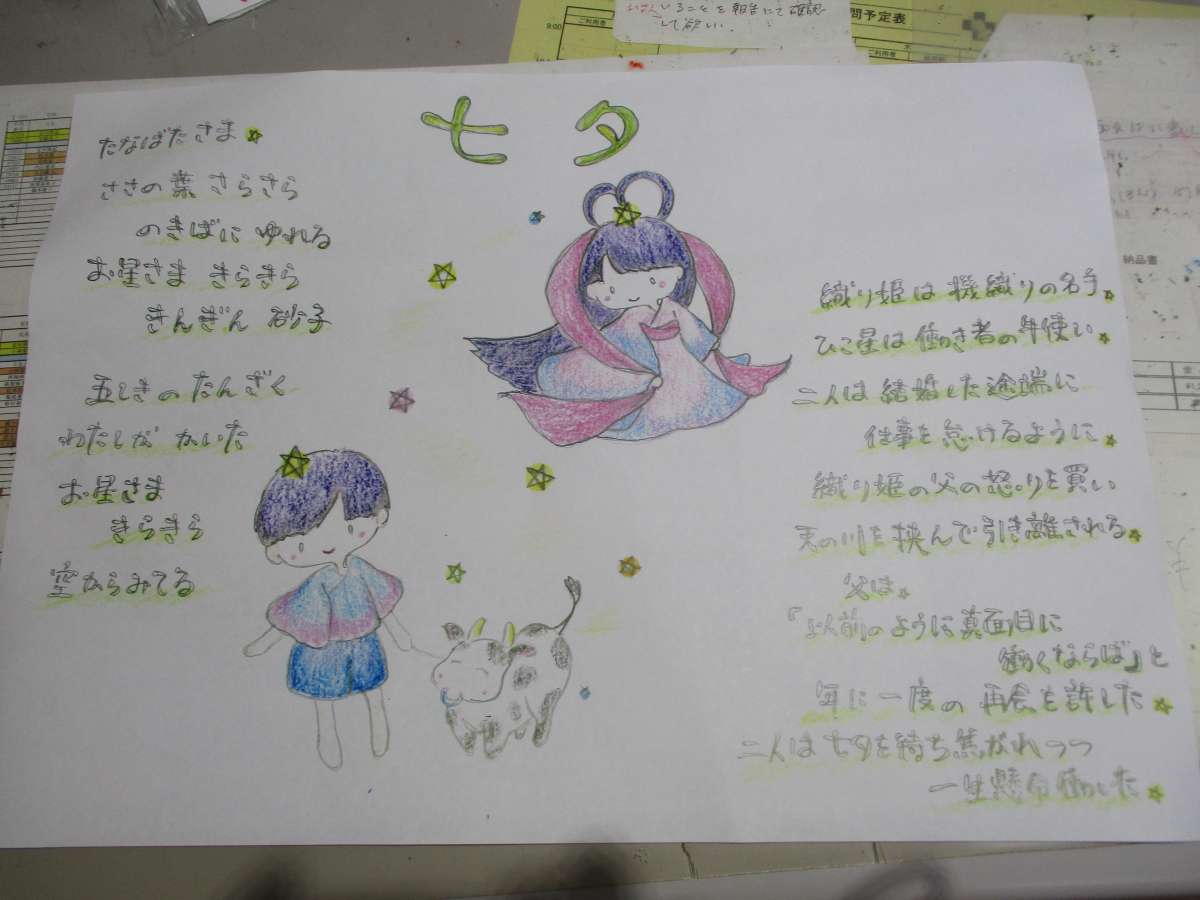 七夕
たなばたさま
ささの葉 さらさら
のきばに ゆれる
お星さま きらきら
きんぎん 砂子
五しきの たんざく
わたしが かいた
お星さま
きらきら
空からみてる
織り姫は機織りの名手
ひこ星は働き者の牛使い
二人は結婚した途端に
仕事を怠けるように
織り姫の父の怒りを買い
天の川を挟んで引き離される
父は
『以前のように真面目に
働くならば』と
年に一度の再会を許した
二人は七夕を待ち焦がれつつ
一生懸命働いた
いることを報告にて確認
して欲しい.
9:00
ご利用者
間予定表
ご利用者
納品書